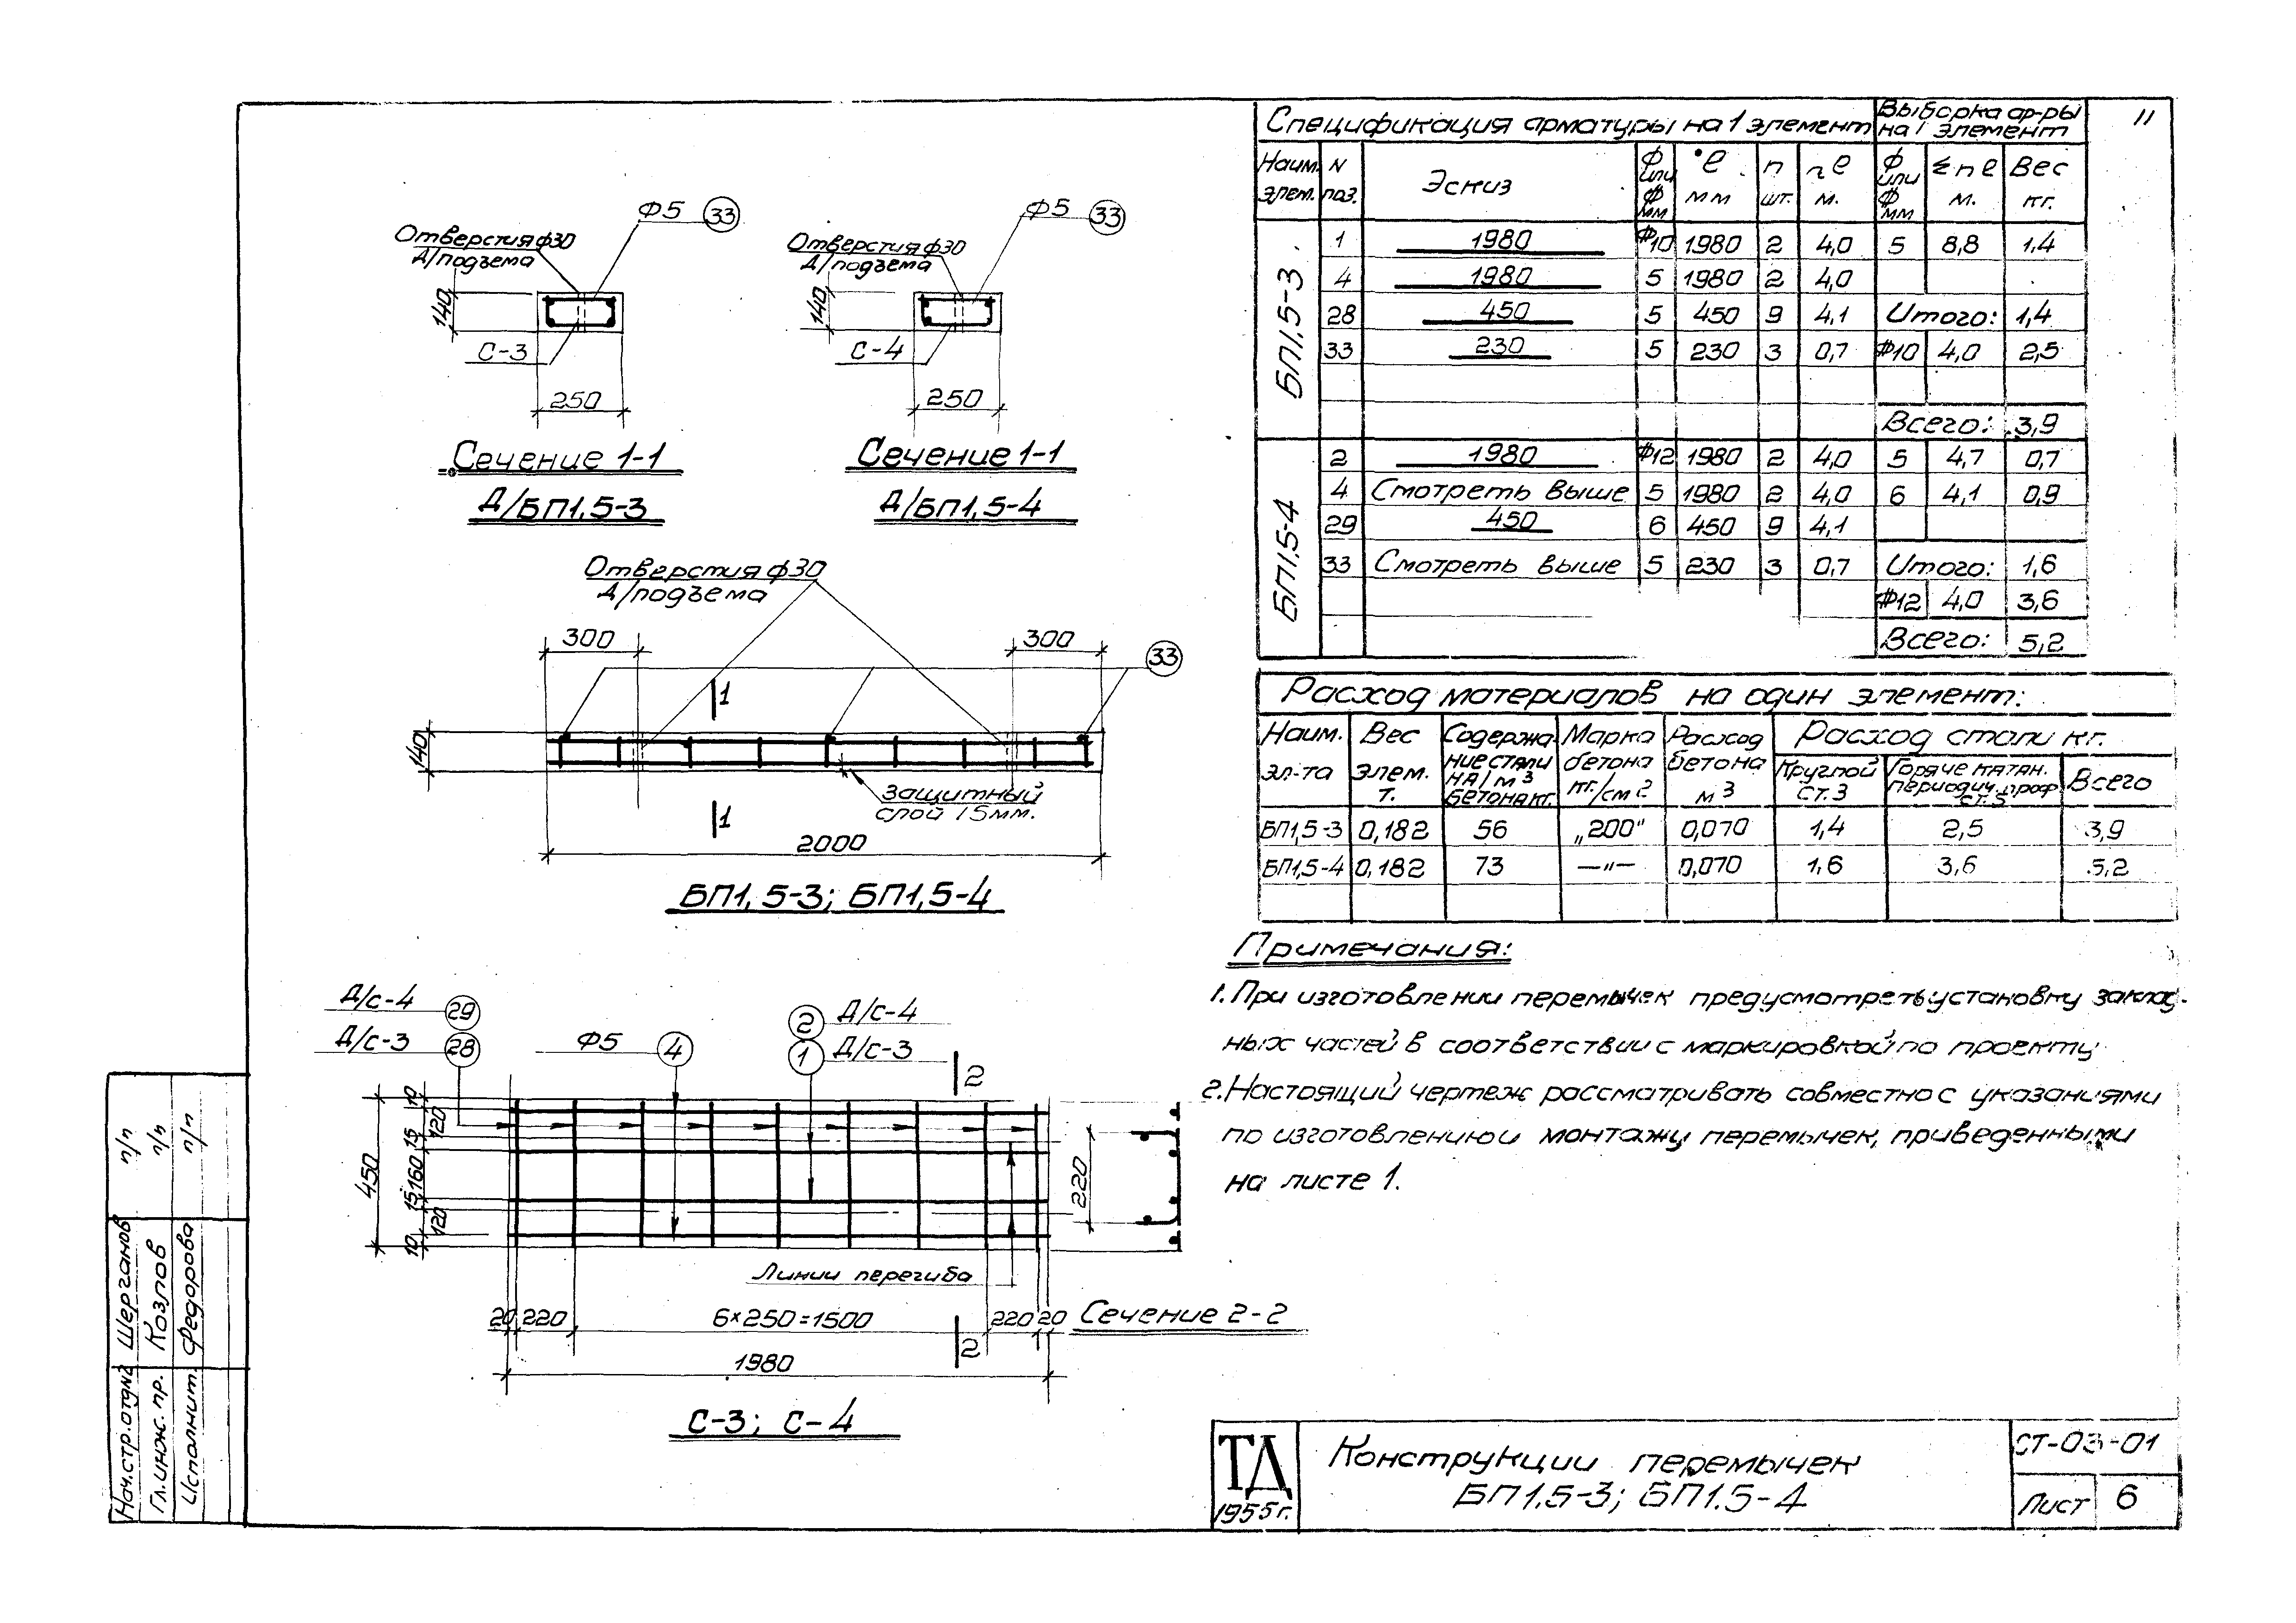 11
Ф5 33
Отверстия ф30
Д/подъема
140
С-3
250
Сечение 1-1
Д/БП1,5-3
Ф5 33
Отверстия ф30
Д/подъема
140
С-4
250
Сечение 1-1
Д/БП1,5-4
Отверстия ф30
Д/подъема
300 300
33
1
140
защитный
слой 15мм.
1
2000
БП1,5-3; БП1,5-4
Д/с-4 29
Д/с-3 28
Ф5 4
2 Д/с-4
1 Д/с-3
2
450
10 120 15 160 15 120 10
220
Линии перегиба
20 220 6×250=1500 220 20
2
Сечение 2-2
1980
С-3; С-4
Спецификация арматуры на 1 элемент
Выборка ар-ры
на 1 элемент
Наим. элем. N поз. Эскиз ф или ф мм ℓ мм n шт. nℓ м. ф или ф мм Σnℓ м. Вес кг.
БП1,5-3
1 1980 ф10 1980 2 4,0 5 8,8 1,4
4 1980 5 1980 2 4,0
28 450 5 450 9 4,1 Итого: 1,4
33 230 5 230 3 0,7 ф10 4,0 2,5
Всего: 3,9
БП1,5-4
2 1980 ф12 1980 2 4,0 5 4,7 0,7
4 Смотреть выше 5 1980 2 4,0 6 4,1 0,9
29 450 6 450 9 4,1
33 Смотреть выше 5 230 3 0,7 Итого: 1,6
ф12 4,0 3,6
Всего: 5,2
Расход материалов на один элемент:
Наим. эл-та Вес элем. т. Содержание стали на 1 м3 бетона кг. Марка бетона кг./см2. Расход бетона м3 Расход стали кг.
Круглой ст.3 Горяче катан. периодич. проф ст.5 Всего
БП1,5-3 0,182 56 „200" 0,070 1,4 2,5 3,9
БП1,5-4 0,182 73 —"— 0,070 1,6 3,6 5,2
Примечания:
1. При изготовлении перемычек предусмотреть установку заклад-
ных частей в соответствии с маркировкой по проекту
2. Настоящий чертеж рассматривать совместно с указаниями
по изготовлению и монтажу перемычек, приведенными
на листе 1.
Нач.стр.отд№2 Шерганов п/п
Гл.инж.пр. Козлов п/п
Исполнит. Федорова п/п
ТД
1955г.
Конструкции перемычек
БП1,5-3; БП1.5-4
СТ-03-01
Лист 6